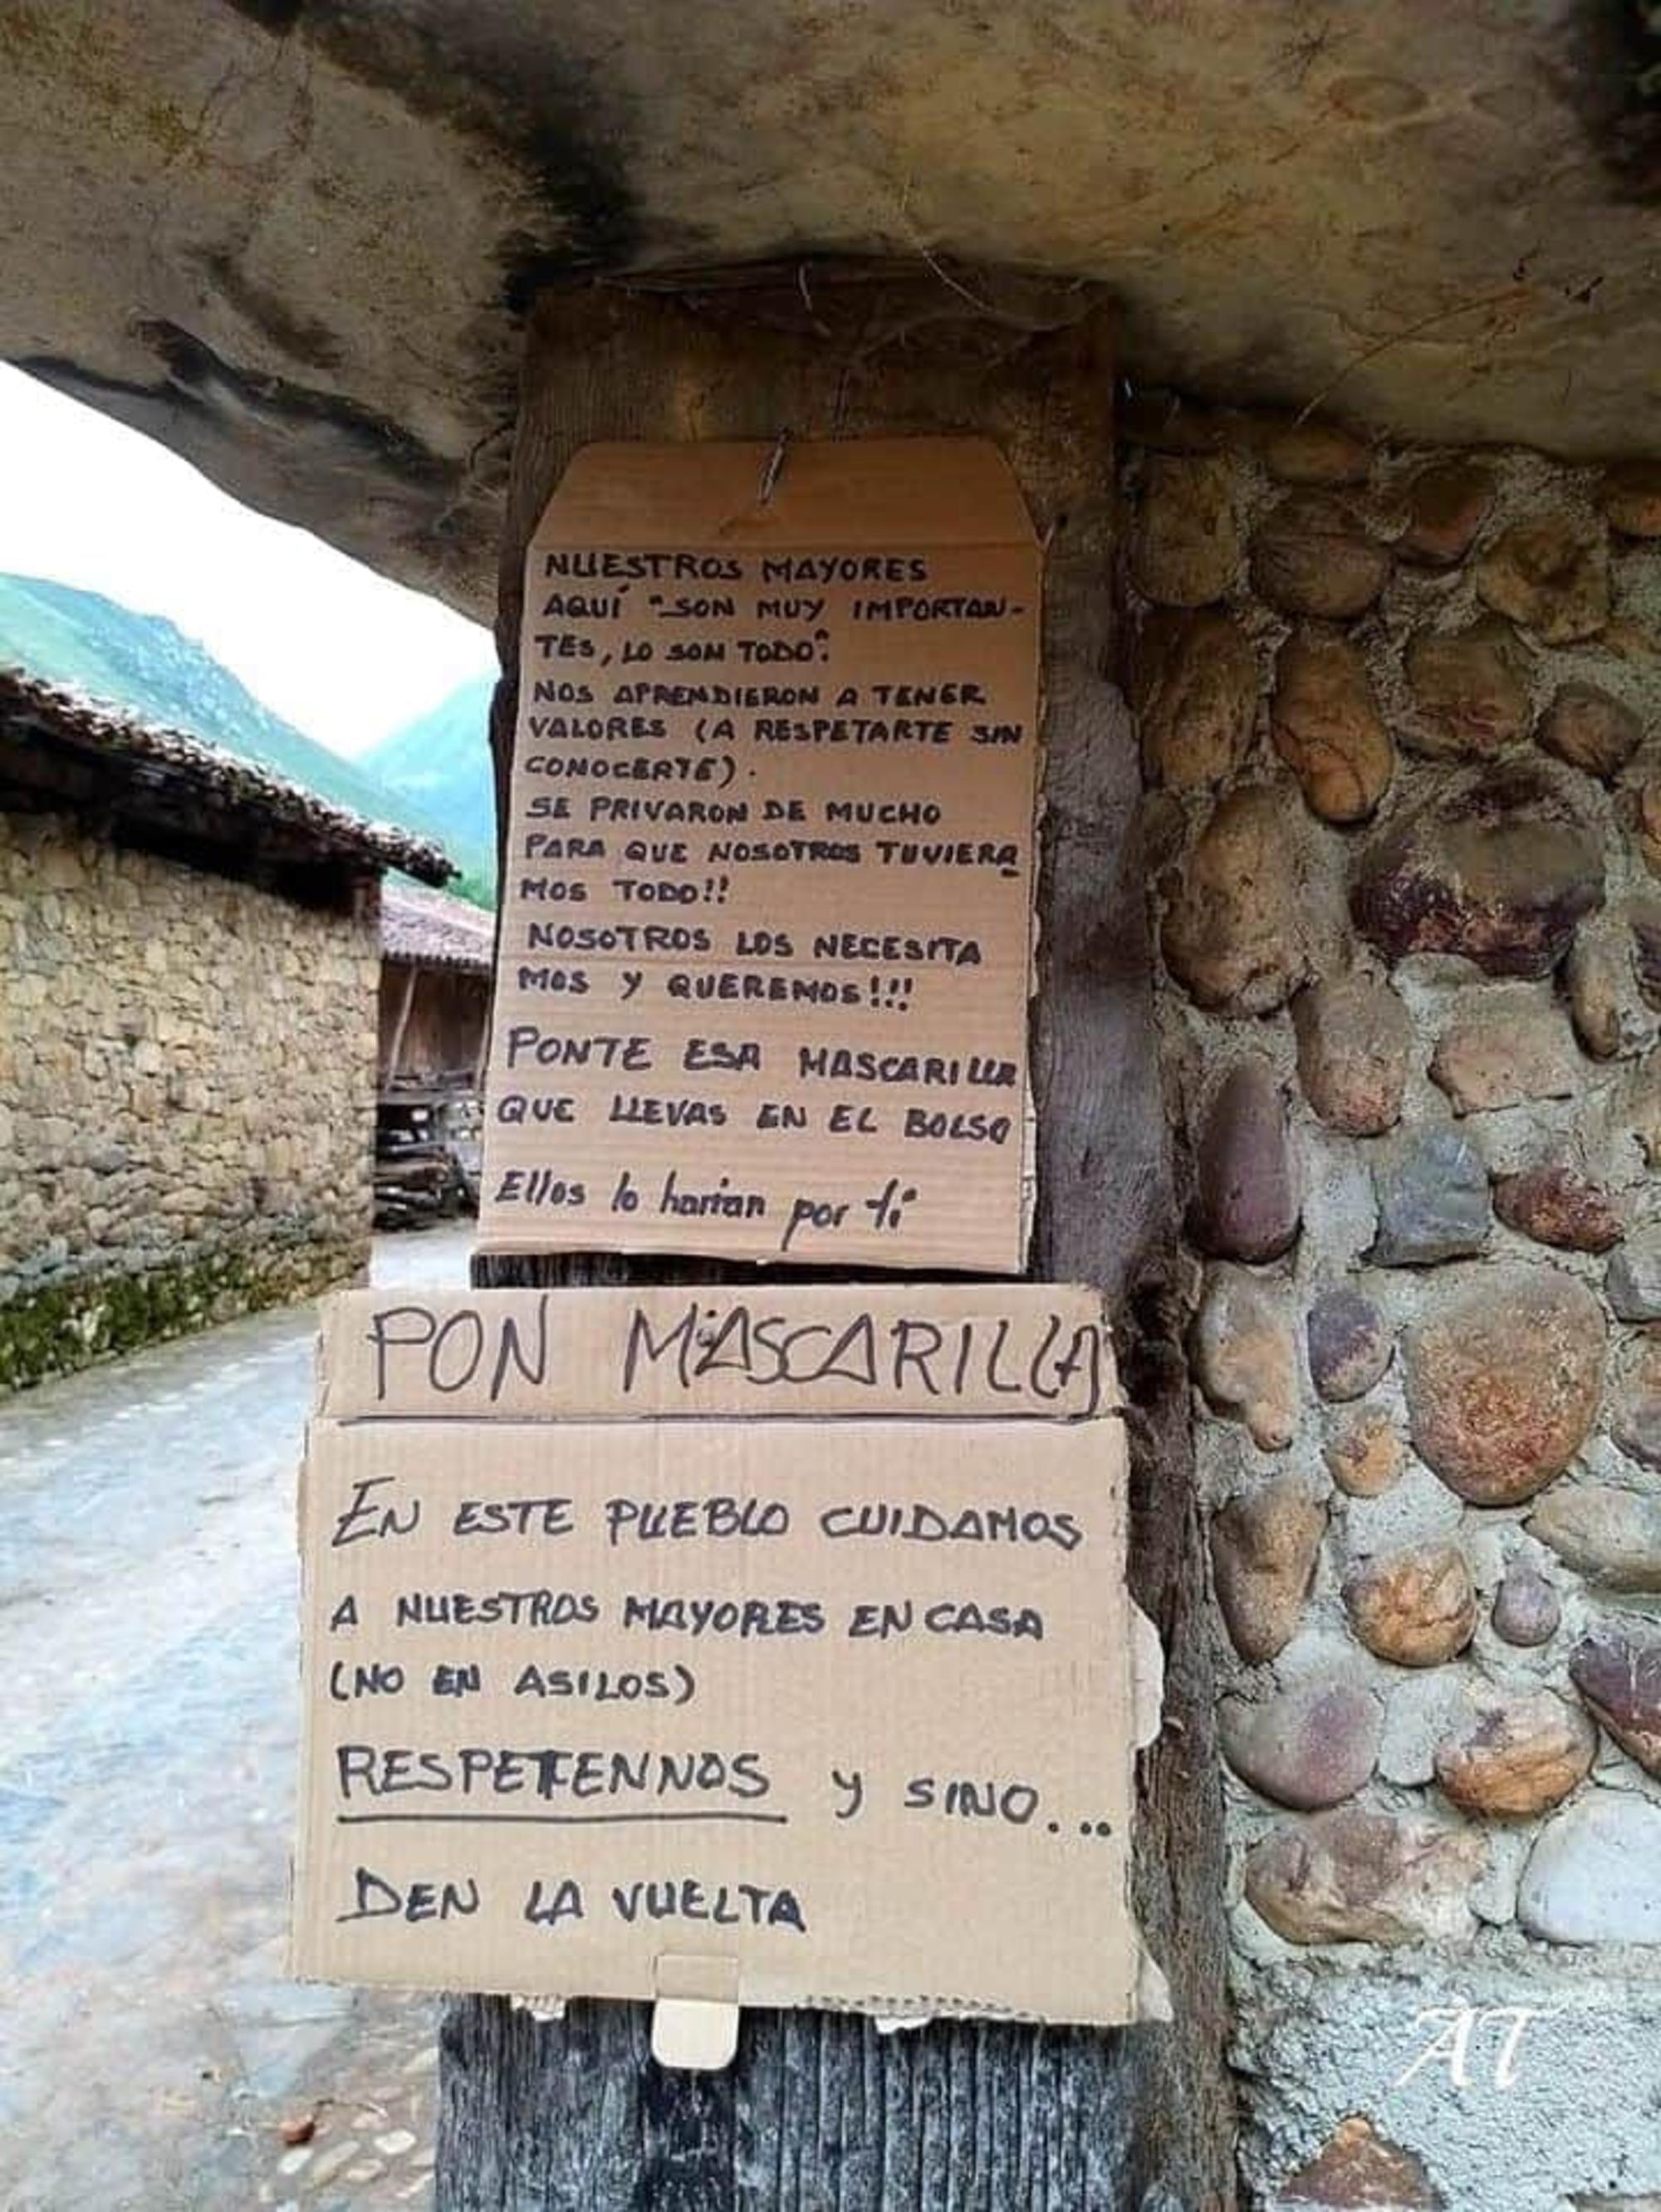 NUESTROS MAYORES
AQUÍ "SON MUY IMPORTAN-
TES, LO SON TODO".
NOS APRENDIERON A TENER
VALORES (A RESPETARTE SIN
CONOCERTE).
SE PRIVARON DE MUCHO
PARA QUE NOSOTROS TUVIERA
MOS TODO!!
NOSOTROS LOS NECESITA
MOS Y QUEREMOS!!!
PONTE ESA MASCARILLA
QUE LLEVAS EN EL BOLSO
Ellos lo harian por ti
PON MASCARILLA
EN ESTE PUEBLO CUIDAMOS
A NUESTROS MAYORES EN CASA
(NO EN ASILOS)
RESPETENNOS Y SINO...
DEN LA VUELTA
AT